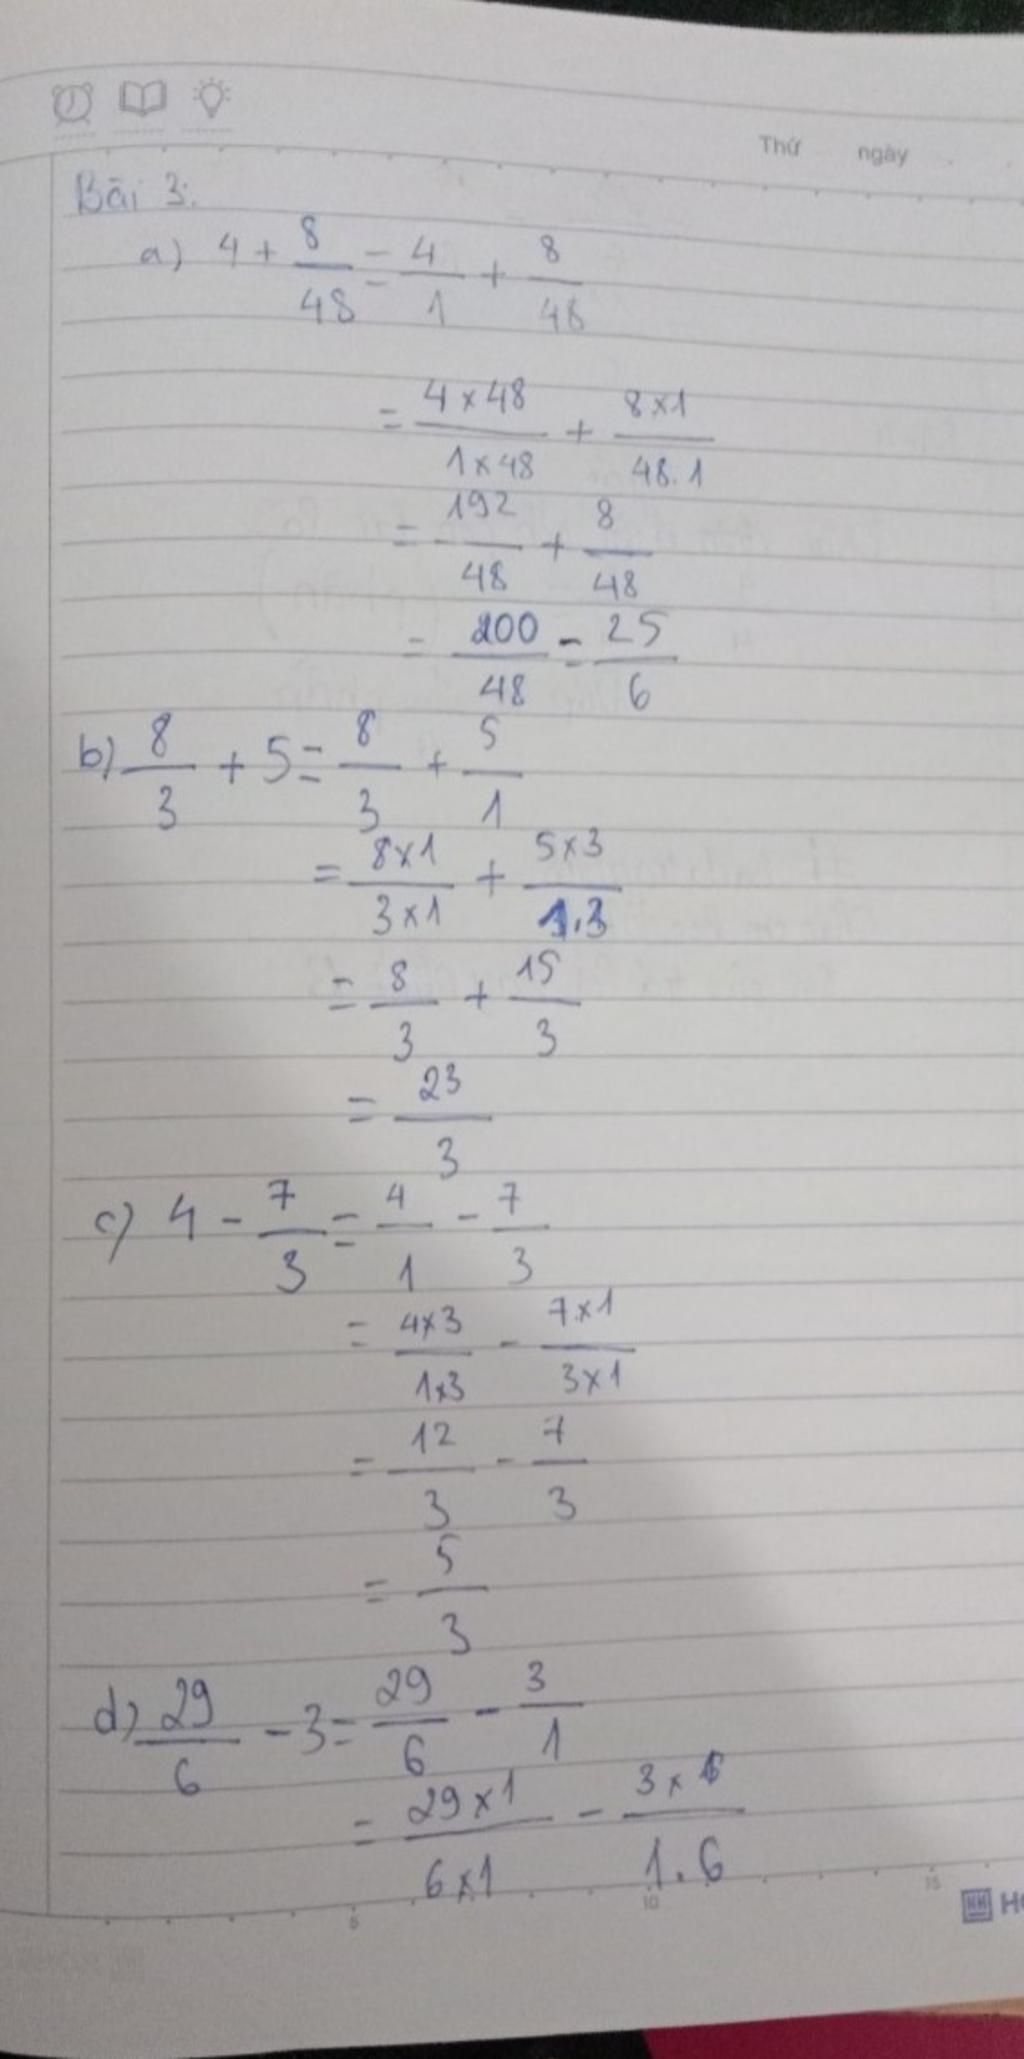 Thứ ngày
Bài 3:
a) 4 + 8/48 = 4/1 + 8/48
= 4 x 48/1 x 48 + 8 x 1/48.1
= 192/48 + 8/48
= 200/48 = 25/6
b) 8/3 + 5 = 8/3 + 5/1
= 8 x 1/3 x 1 + 5 x 3/1.3
= 8/3 + 15/3
= 23/3
c) 4 - 7/3 = 4/1 - 7/3
= 4 x 3/1 x 3 - 7 x 1/3 x 1
= 12/3 - 7/3
= 5/3
d) 29/6 - 3 = 29/6 - 3/1
= 29 x 1/6 x 1 - 3 x 6/1.6
5 10 15